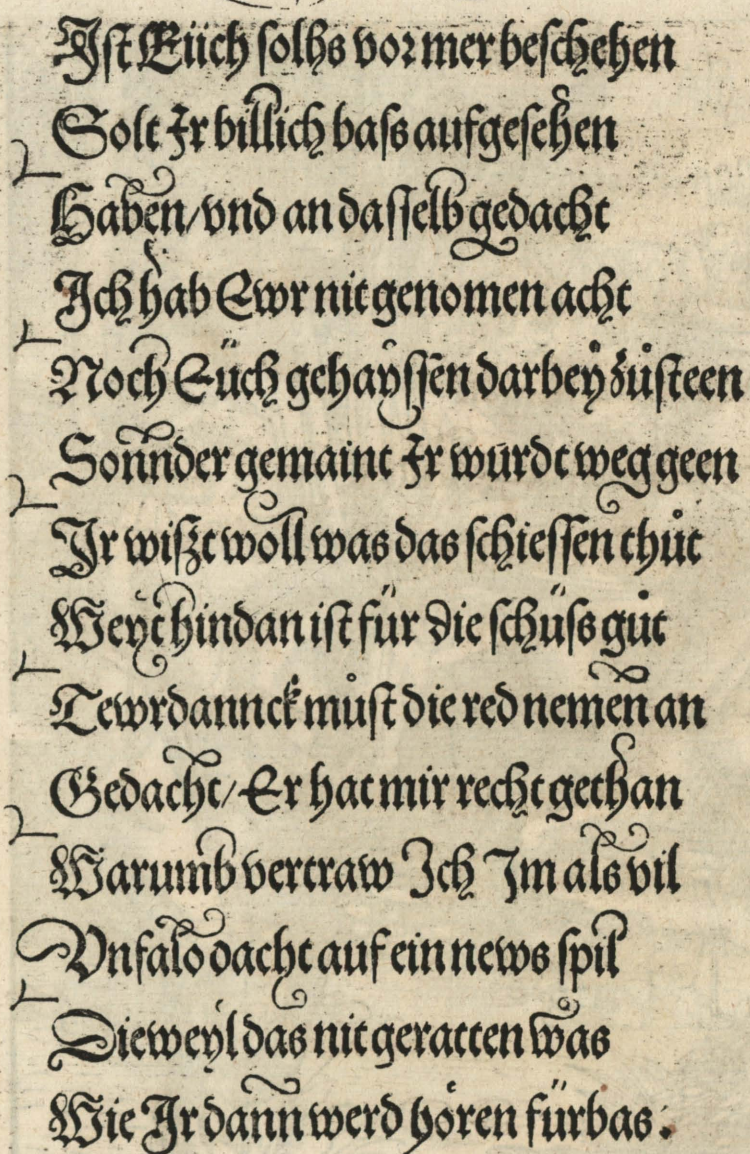 Ist Eüch solhs vor mer beschehen
Solt Ir billich bass aufgesehen
Haben/vnd an dasselb gedacht
Ich hab Ewr nit genomen acht
Noch Eüch gehayssen darbey zůsteen
Sonnder gemaint Ir wurdt weg geen
Ir wißt woll was das schiessen thůt
Weyt hindan ist für die schüss gůt
Tewrdannck můst die red nemen an
Gedacht/Er hat mir recht gethan
Warumb vertraw Ich Im als vil
Vnfalo dacht auf ein news spil
Dieweyl das nit geratten was
Wie Ir dann werd hören fürbas: